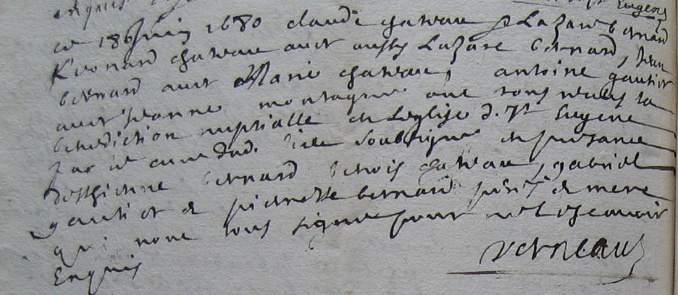 enquis
St Eugene
ce 18e Juin 1680 claude gateau & Lazare bernard
Leonard gateau avec aussy Lazare bernard, Jean
bernard avec Marie gateau, antoine gautier
avec Jeanne montagne ont tous receu la
benediction nuptialle en Leglise d. St Eugene
par le curé dud. lieu soubsigne en presence
destienne bernard benoist gateau, gabriel
gautier & pierrette bernard mere
qui nont tous signe pour ne scavoir
Enquis
Verneau